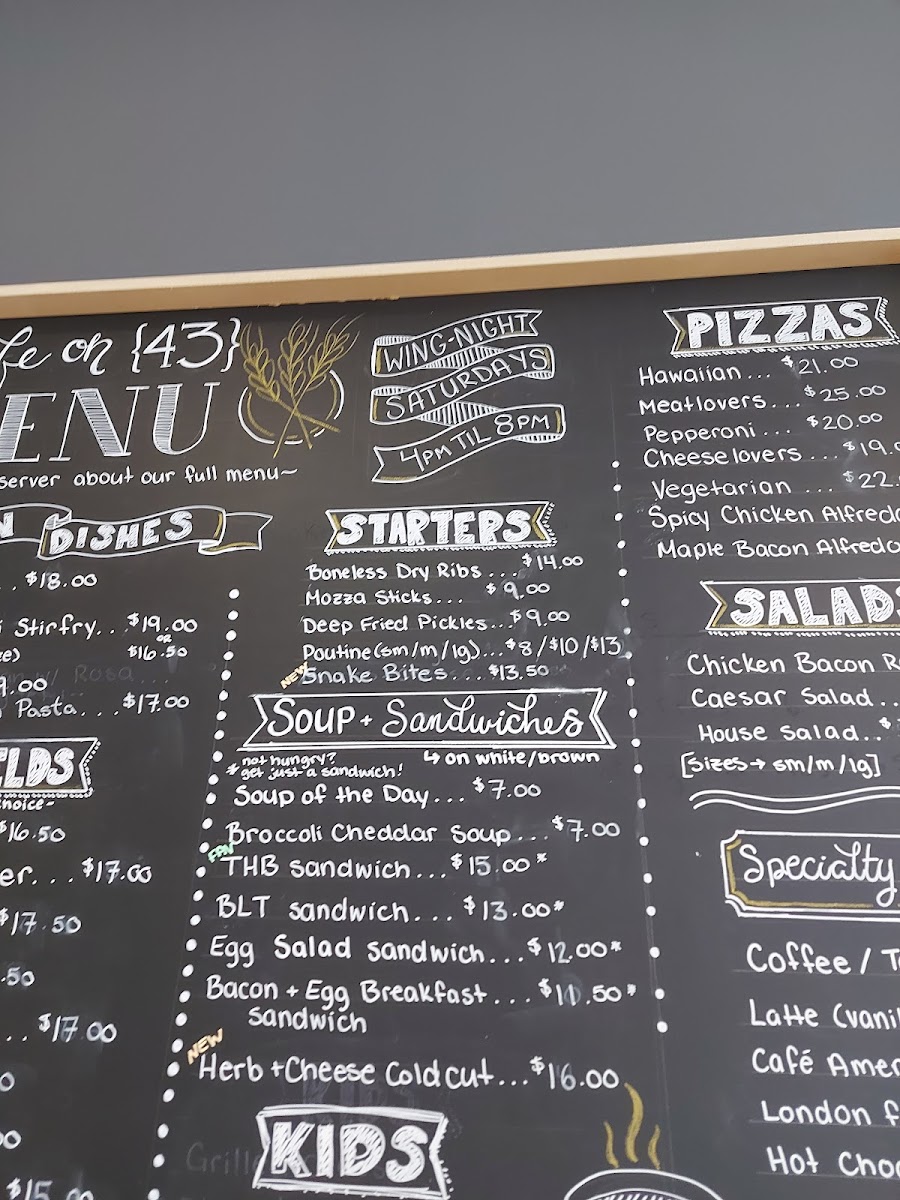 fe on {43}
ENU
server about our full menu~
WING-NIGHT
SATURDAYS
4PM TIL 8PM
N DISHES
.. $18.00
i Stirfry... $19.00
or
ze) $16.50
9.00
Pasta... $17.00
ELDS
choice~
$16.50
er... $17.00
$17.50
.50
... $17.00
$15.
STARTERS
Boneless Dry Ribs... $14.00
Mozza Sticks... $9.00
Deep Fried Pickles... $9.00
Poutine (sm/m/lg)... $8/$10/$13
NEW
Snake Bites... $13.50
SOUP + Sandwiches
*not hungry?
get just a sandwich!
↳ on white/brown
Soup of the Day... $7.00
Broccoli Cheddar Soup... $7.00
FAV
THB sandwich... $15.00*
BLT sandwich... $13.00*
Egg Salad sandwich... $12.00*
Bacon + Egg Breakfast... $10.50*
sandwich
NEW
Herb + Cheese Coldcut... $16.00
KIDS
Grill
PIZZAS
Hawaiian... $21.00
Meatlovers... $25.00
Pepperoni... $20.00
Cheeselovers... $19.0
Vegetarian... $22.
Spicy Chicken Alfredo
Maple Bacon Alfredo
SALADS
Chicken Bacon R
Caesar Salad..
House Salad.. $
[Sizes → sm/m/lg]
Specialty
Coffee / T
Latte (vanil
Café Amer
London f
Hot Choc